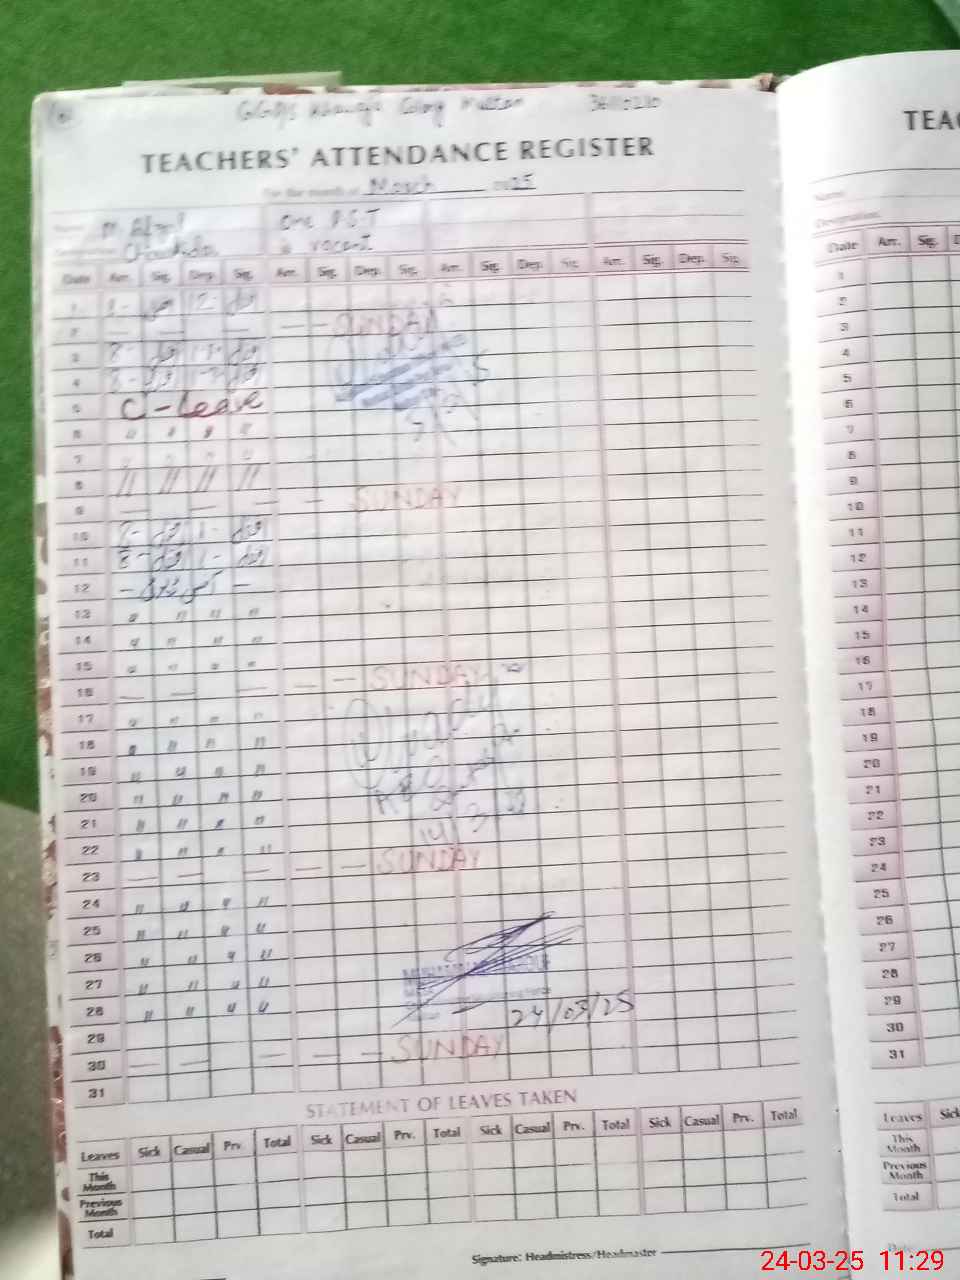 GGPS Khawaja Colony Multan 36110210
TEACHERS' ATTENDANCE REGISTER
For the month of March 2025
Name M. Afzal One P.S.T
Designation Chowkidar is vacant
Date Arr. Sig. Dep. Sig. Arr. Sig. Dep. Sig. Arr. Sig. Dep. Sig. Arr. Sig. Dep. Sig.
1 8- 12-
2 — — — — — SUNDAY
3 8- 1-
4 8- 1-
5 C-Leave
6 " " " "
7 " " " "
8 " " " "
9 — — — — SUNDAY
10 8- 1-
11 8- 1-
12
13 " " " "
14 " " " "
15 " " " "
16 — — — — — SUNDAY
17 " " " "
18 " " " "
19 " " " "
20 " " " "
21 " " " "
14/3
22 " " " "
23 — — — — — SUNDAY
24 " " " "
25 " " " "
26 " " " "
27 " " " "
28 " " " "
24/03/25
29
30 — — — — — SUNDAY
31
STATEMENT OF LEAVES TAKEN
Leaves Sick Casual Prv. Total Sick Casual Prv. Total Sick Casual Prv. Total Sick Casual Prv. Total
This Month
Previous Month
Total
Signature: Headmistress/Headmaster
TEA
Name
Designation
Date Arr. Sig. D
1
2
3
4
5
6
7
8
9
10
11
12
13
14
15
16
17
18
19
20
21
22
23
24
25
26
27
28
29
30
31
Leaves Sick
This Month
Previous Month
Total
Date
24-03-25 11:29